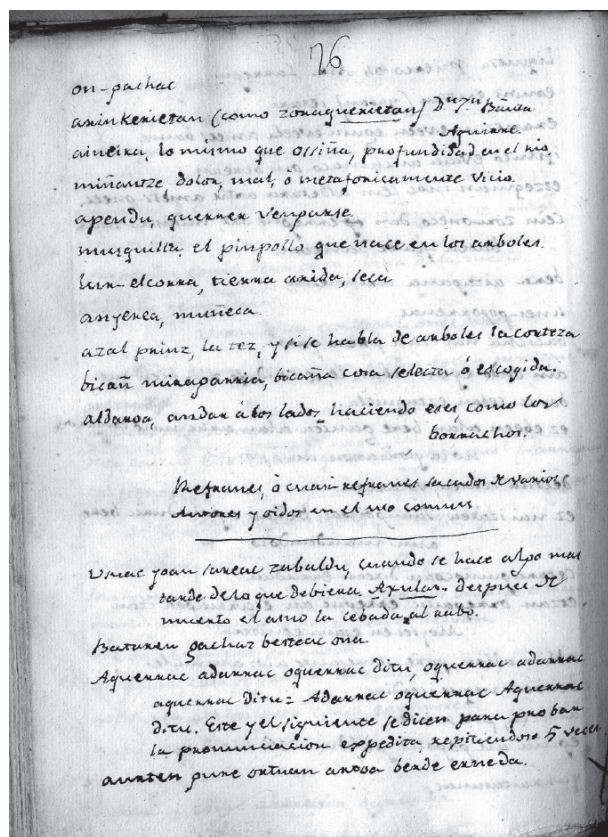 26
on-pachac
arinkerietan (como zonaquerietan) Dn Jn Bauta
Aguirre
aineira, lo mismo que ossiña, profundidad en el rio
miñantze dolor, mal, ó metaforicamente vicio.
apendu, querrer vengarse.
musquilla, el pimpollo que nace en los arboles.
lur-elcorra, tierra arida, seca
anyerea, muñeca.
azal prinz, la tez, y si se habla de arboles la corteza
bicañ miragarria, bicaña cosa selecta ó escogida.
aldaroa, andar á los lados haciendo eses, como los
borrachos.
Refranes, ó cuasi-refranes sacados de varios
Autores y oidos en el uso comun
Usiac joan sareac zabaldu, cuando se hace algo mas
tarde de lo que debiera. Axular. despues de
muerto el asno la cebada al rabo.
Baturen gachaz besteac ona
Aquerrac adarrac oquerrac ditu, oquerrac adarrac
aquerrac ditu = Adarrac oquerrac Aquerrac
ditu. Este y el siguiente se dicen para probar
la pronunciacion expedita repitiendose 5 veces
aurten gure ortuan artoa berde erneda.